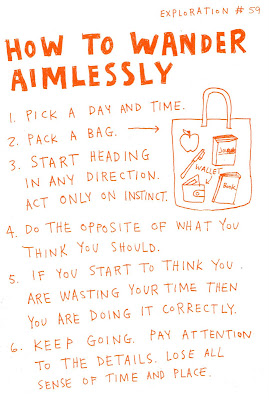 EXPLORATION #59
HOW TO WANDER
AIMLESSLY
1. PICK A DAY AND TIME.
2. PACK A BAG.
3. START HEADING
IN ANY DIRECTION.
ACT ONLY ON INSTINCT.
WALLET
Book
4. DO THE OPPOSITE OF WHAT YOU
THINK YOU SHOULD.
5. IF YOU START TO THINK YOU
ARE WASTING YOUR TIME THEN
YOU ARE DOING IT CORRECTLY.
6. KEEP GOING. PAY ATTENTION
TO THE DETAILS. LOSE ALL
SENSE OF TIME AND PLACE.